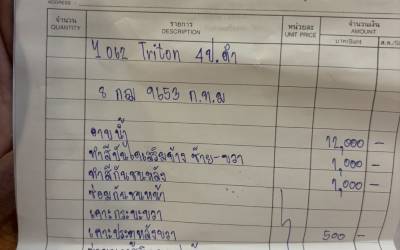 ADDRESS
จำนวน รายการ หน่วยละ จำนวนเงิน
QUANTITY DESCRIPTION UNIT PRICE AMOUNT
บาท/Baht ส.ต./Sa
Triton 4ป.ดำ
8 กฌ 9653 ก.ท.ม
อาบน้ำ 12,000 -
ทำสีบันไดเสริมข้าง ซ้าย-ขวา 1,000 -
ทำสีกันชนหลัง 1,000 -
ซ่อมกันชนหน้า
เคาะกระบะขวา
เคาะประตูหลังขวา 500 -